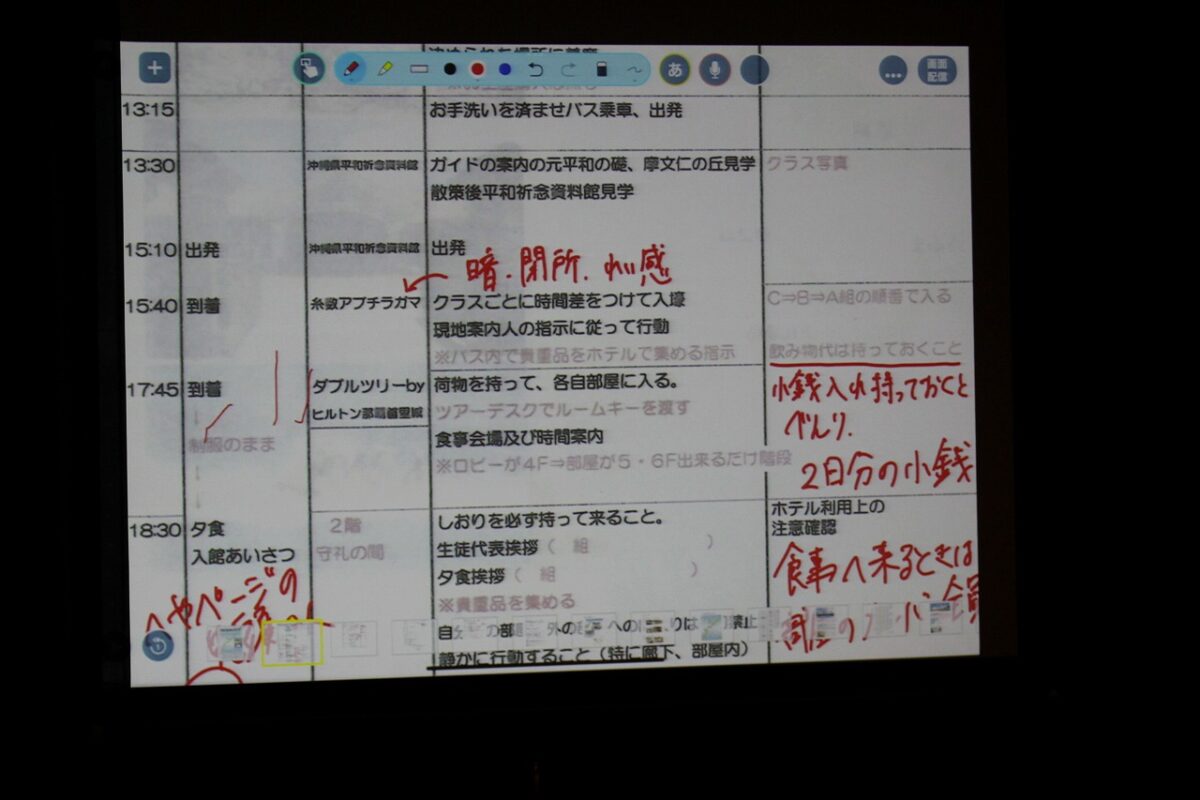 画面
配信
あ
13:15
お手洗いを済ませバス乗車、出発
13:30
沖縄県平和祈念資料館
ガイドの案内の元平和の礎、摩文仁の丘見学
クラス写真
散策後平和祈念資料館見学
15:10
出発
沖縄県平和祈念資料館
出発
暗・閉所・
感
15:40
到着
糸数アブチラガマ
クラスごとに時間差をつけて入壕
C⇒B⇒A組の順番で入る
現地案内人の指示に従って行動
※バス内で貴重品をホテルで集める指示
飲み物代は持っておくこと
17:45
到着
ダブルツリーby
ヒルトン那覇首里城
荷物を持って、各自部屋に入る。
小銭入れ持っておくと
べんり.
↓
制服のまま
↓
↓
ツアーデスクでルームキーを渡す
食事会場及び時間案内
※ロビーが4F⇒部屋が5・6F出来るだけ階段
2日分の小銭
18:30
夕食
2階
しおりを必ず持って来ること。
ホテル利用上の
注意確認
入館あいさつ
守礼の間
生徒代表挨拶(　組　　　　)
夕食挨拶(　組　　　　)
食事へ来るときは
※貴重品を集める
へやページの
静かに行動すること(特に廊下、部屋内)